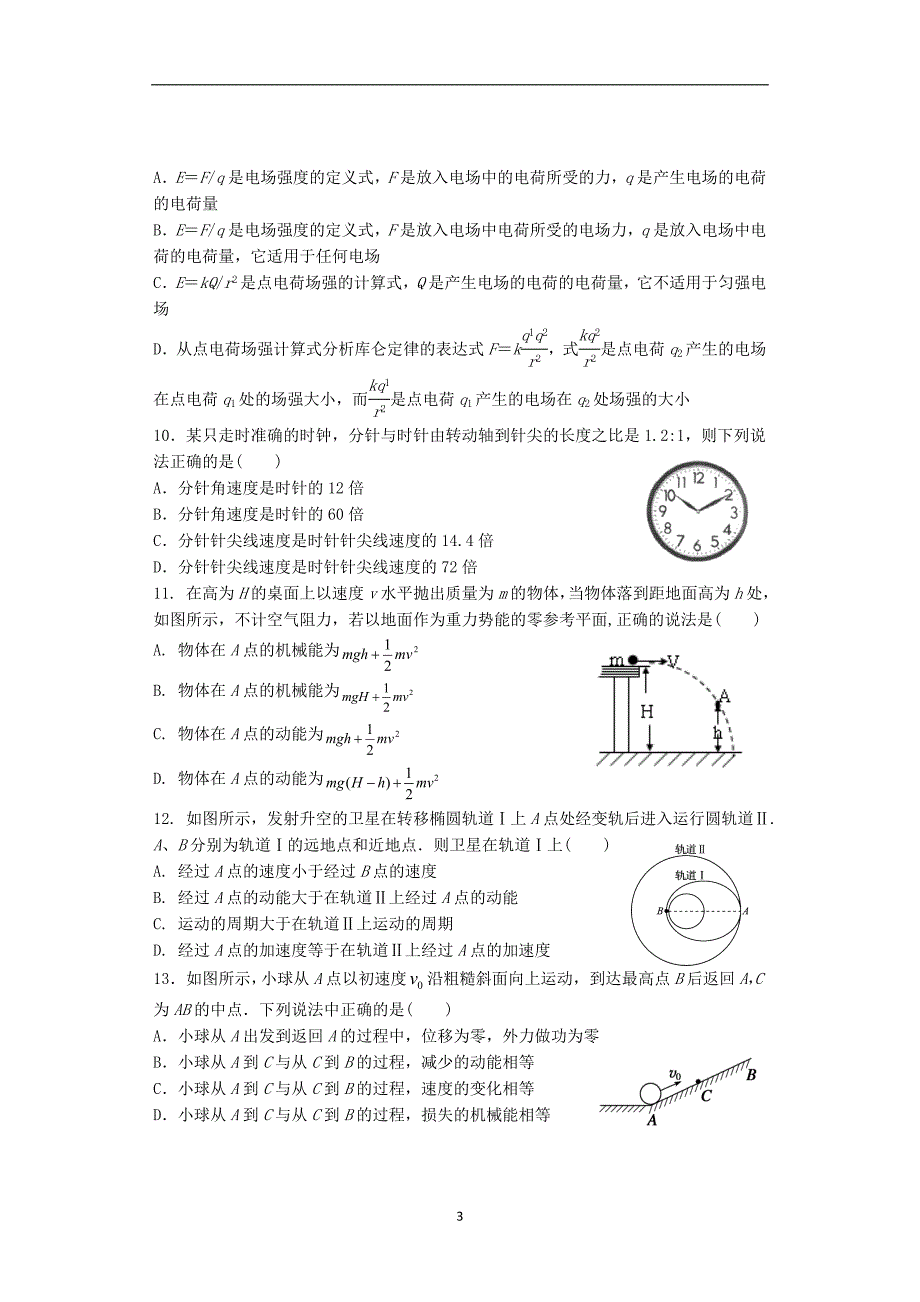 A．E＝F/q是电场强度的定义式，F是放入电场中的电荷所受的力，q是产生电场的电荷
的电荷量
B．E＝F/q是电场强度的定义式，F是放入电场中电荷所受的电场力，q是放入电场中电
荷的电荷量，它适用于任何电场
C．E＝kQ/r²是点电荷场强的计算式，Q是产生电场的电荷的电荷量，它不适用于匀强电
场
D．从点电荷场强计算式分析库仑定律的表达式F＝k\frac{q1q2}{r²}，式\frac{kq2}{r²}是点电荷q₂产生的电场
在点电荷q₁处的场强大小，而\frac{kq1}{r²}是点电荷q₁产生的电场在q₂处场强的大小
10．某只走时准确的时钟，分针与时针由转动轴到针尖的长度之比是1.2:1，则下列说
法正确的是(　　)
A．分针角速度是时针的12倍
B．分针角速度是时针的60倍
C．分针针尖线速度是时针针尖线速度的14.4倍
D．分针针尖线速度是时针针尖线速度的72倍
12 1 2 3 4 5 6 7 8 9 10 11
11. 在高为H的桌面上以速度v水平抛出质量为m的物体，当物体落到距地面高为h处，
如图所示，不计空气阻力，若以地面作为重力势能的零参考平面,正确的说法是(　　)
A. 物体在A点的机械能为mgh+\frac{1}{2}mv²
B. 物体在A点的机械能为mgH+\frac{1}{2}mv²
C. 物体在A点的动能为mgh+\frac{1}{2}mv²
D. 物体在A点的动能为mg(H−h)+\frac{1}{2}mv²
m V
A
H h
12. 如图所示，发射升空的卫星在转移椭圆轨道Ⅰ上A点处经变轨后进入运行圆轨道Ⅱ．
A、B分别为轨道Ⅰ的远地点和近地点．则卫星在轨道Ⅰ上(　　)
A. 经过A点的速度小于经过B点的速度
B. 经过A点的动能大于在轨道Ⅱ上经过A点的动能
C. 运动的周期大于在轨道Ⅱ上运动的周期
D. 经过A点的加速度等于在轨道Ⅱ上经过A点的加速度
轨道Ⅱ
轨道Ⅰ
B A
13．如图所示，小球从A点以初速度v₀沿粗糙斜面向上运动，到达最高点B后返回A，C
为AB的中点．下列说法中正确的是(　　)
A．小球从A出发到返回A的过程中，位移为零，外力做功为零
B．小球从A到C与从C到B的过程，减少的动能相等
C．小球从A到C与从C到B的过程，速度的变化相等
D．小球从A到C与从C到B的过程，损失的机械能相等
v₀ B
C
A
3